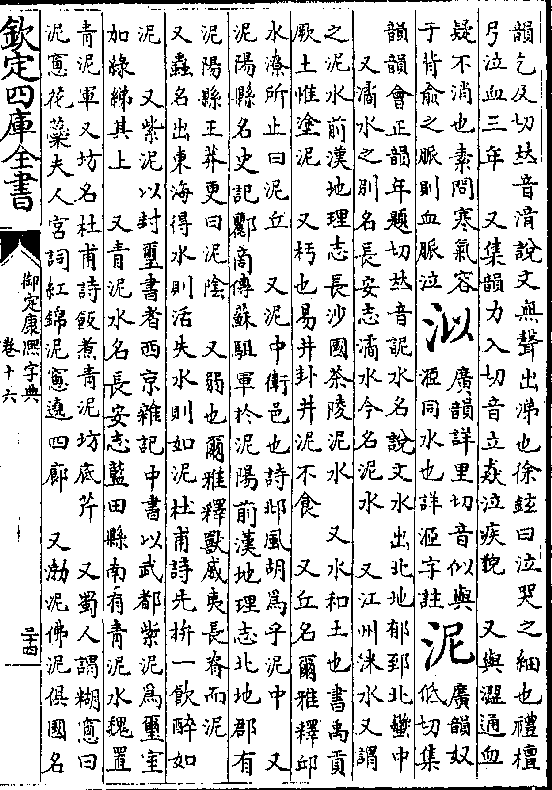 韻乞及切𠀤音湇說文無聲出涕也徐鉉曰泣哭之細也禮檀
弓泣血三年 又集韻力入切音立猋泣疾貌 又與澀通血
疑不消也素問寒氣客
于背俞之脈則血脈泣
㳶
廣韻詳里切音似與
洍同水也詳洍字註
泥
廣韻奴
低切集
韻韻會正韻年題切𠀤音䛏水名說文水出北地郁郅北蠻中
又潏水之別名長安志潏水今名泥水 又江州洣水又謂
之泥水前漢地理志長沙國茶陵泥水 又水和土也書禹貢
厥土惟塗泥 又杇也易井卦井泥不食 又丘名爾雅釋邱
水潦所止曰泥丘 又泥中衛邑也詩邶風胡爲乎泥中 又
泥陽縣名史記酈商傳蘇駔軍於泥陽前漢地理志北地郡有
泥陽縣王莽更曰泥陰 又弱也爾雅釋獸威夷長脊而泥
又蟲名出東海得水則活失水則如泥杜甫詩先拚一飲醉如
泥 又紫泥以封璽書者西京雜記中書以武都紫泥爲璽室
加綠綈其上 又青泥水名長安志藍田縣南有青泥水魏置
青泥軍又坊名杜甫詩飯煮青泥坊底芹 又蜀人謂糊窻曰
泥窻花蘂夫人宮詞紅錦泥窻遶四廊 又渤泥佛泥俱國名
欽定四庫全書
御定康熙字典
卷十六
二十四